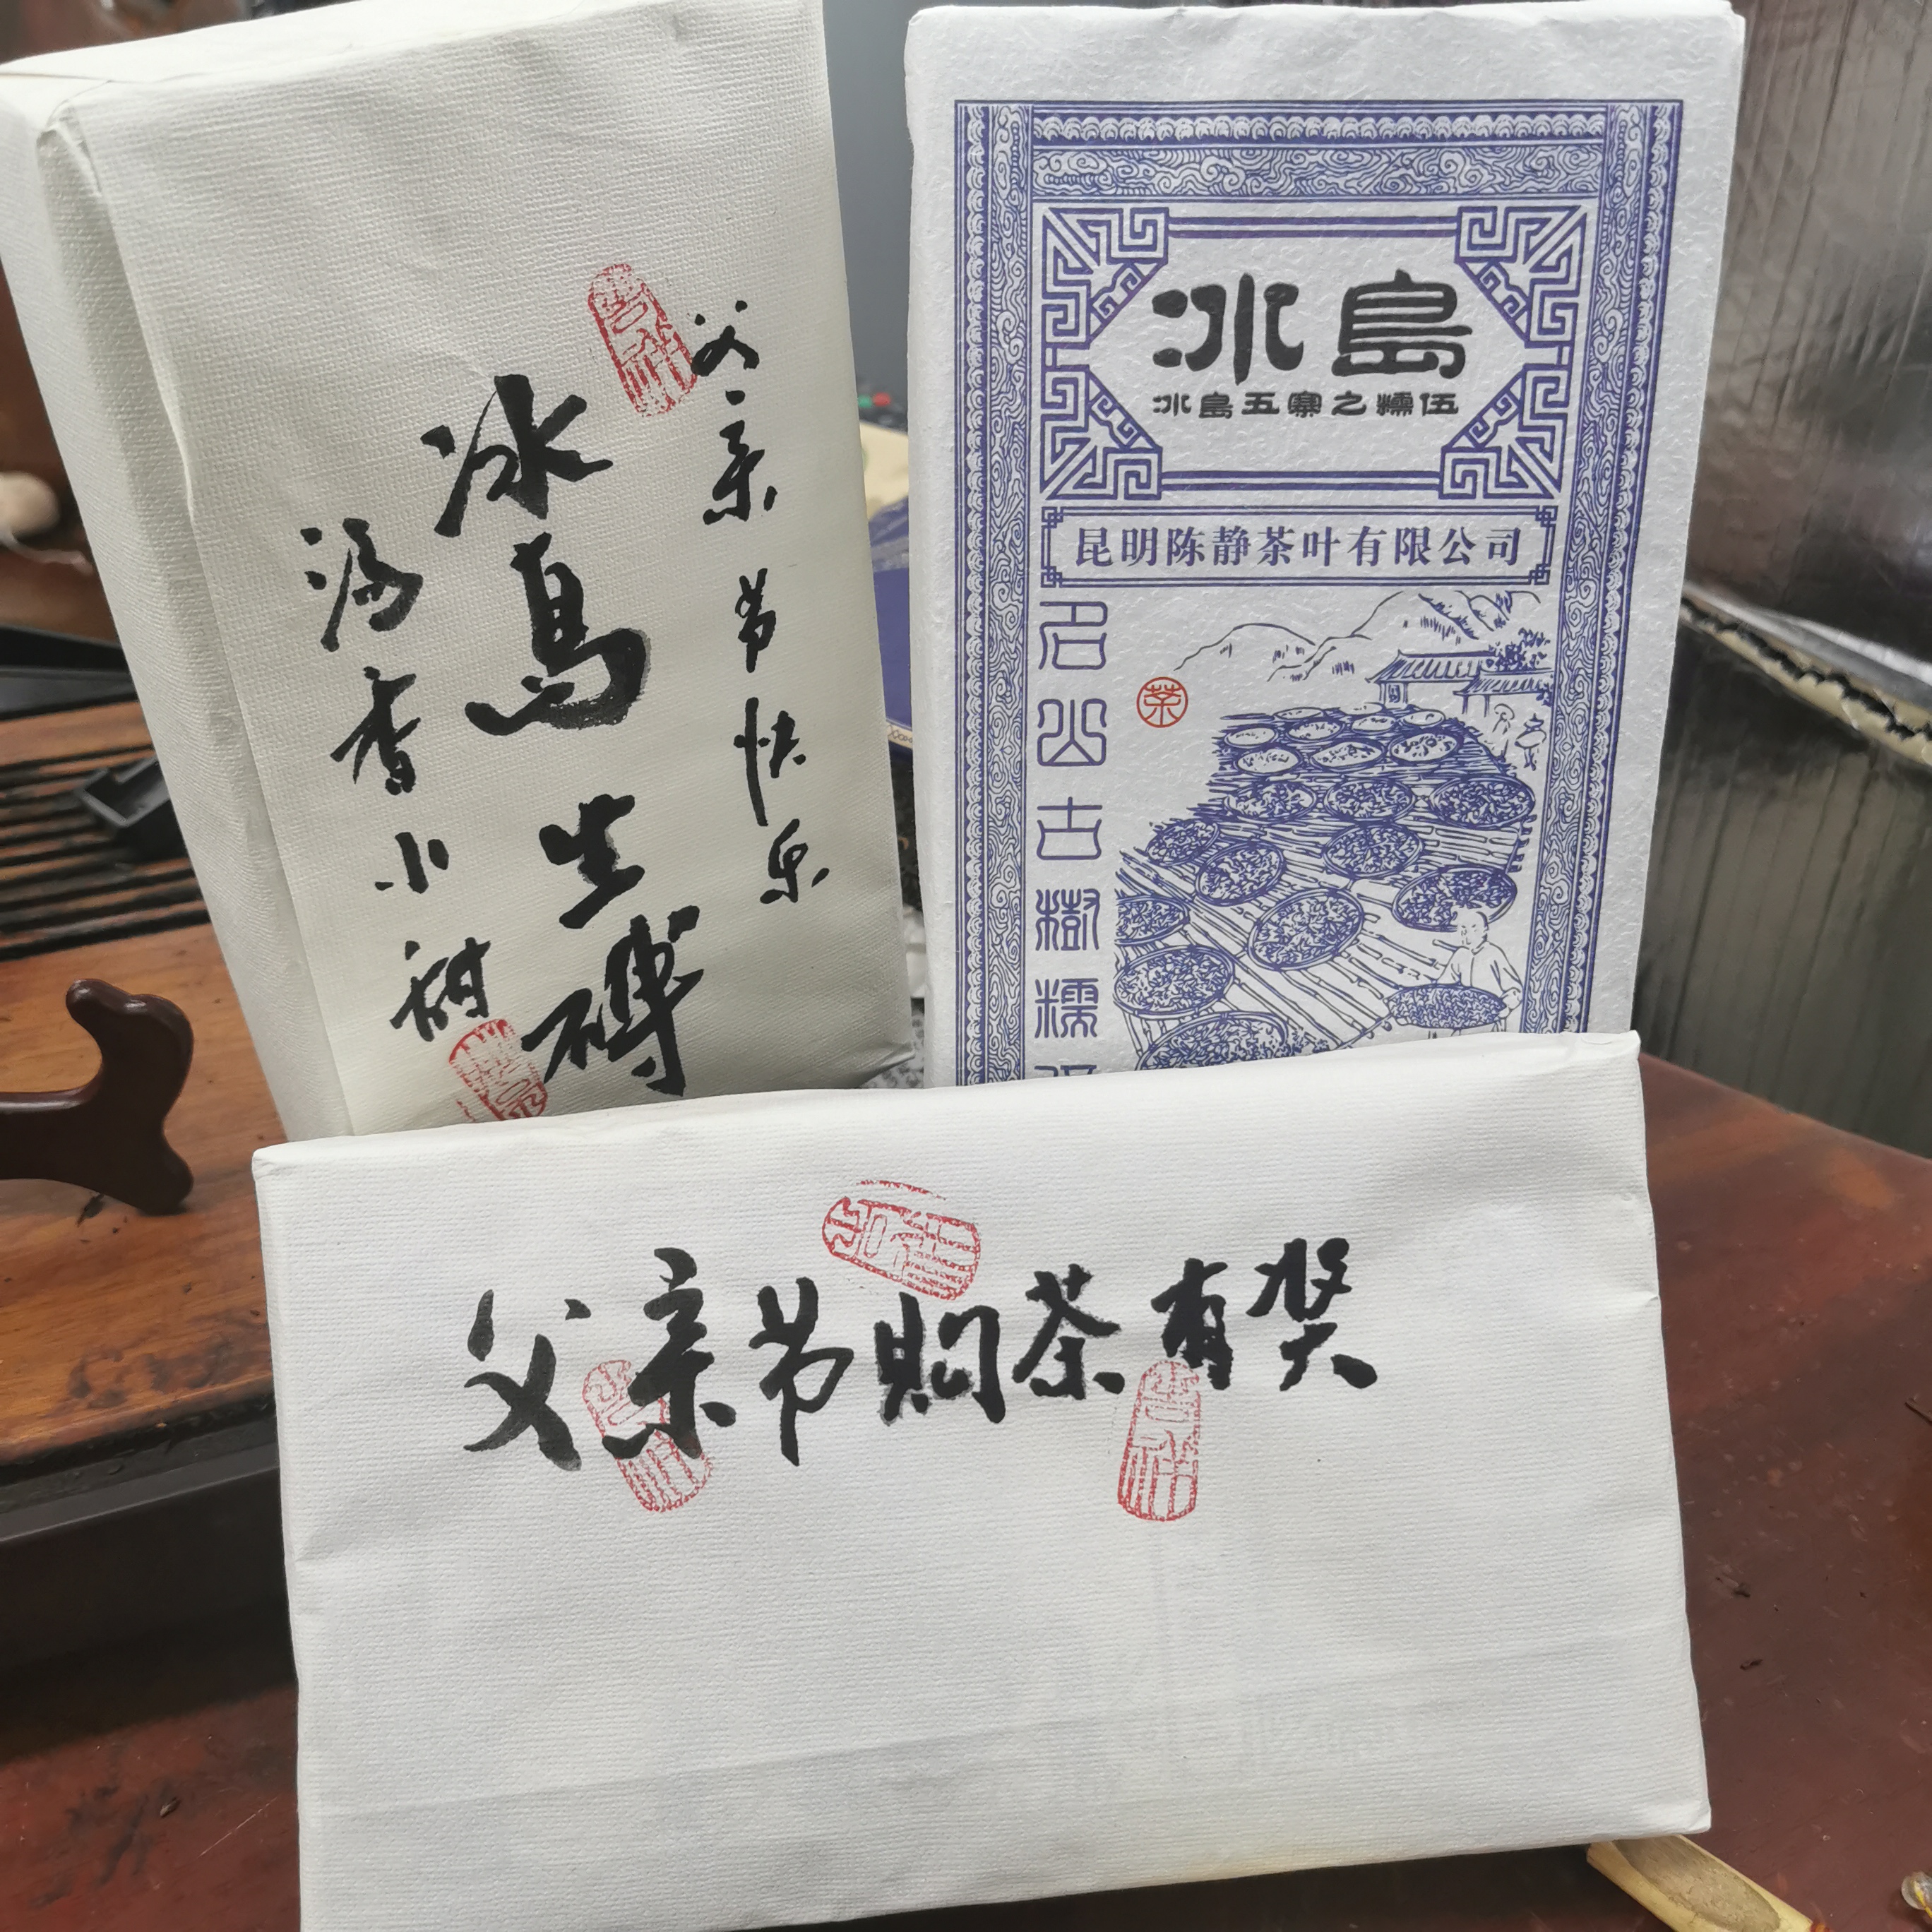 父亲节快乐
冰岛生磚
汤香水甜
冰島
冰島五寨之糯伍
昆明陈静茶叶有限公司
名山古樹糯
茶
父亲节购茶有奖